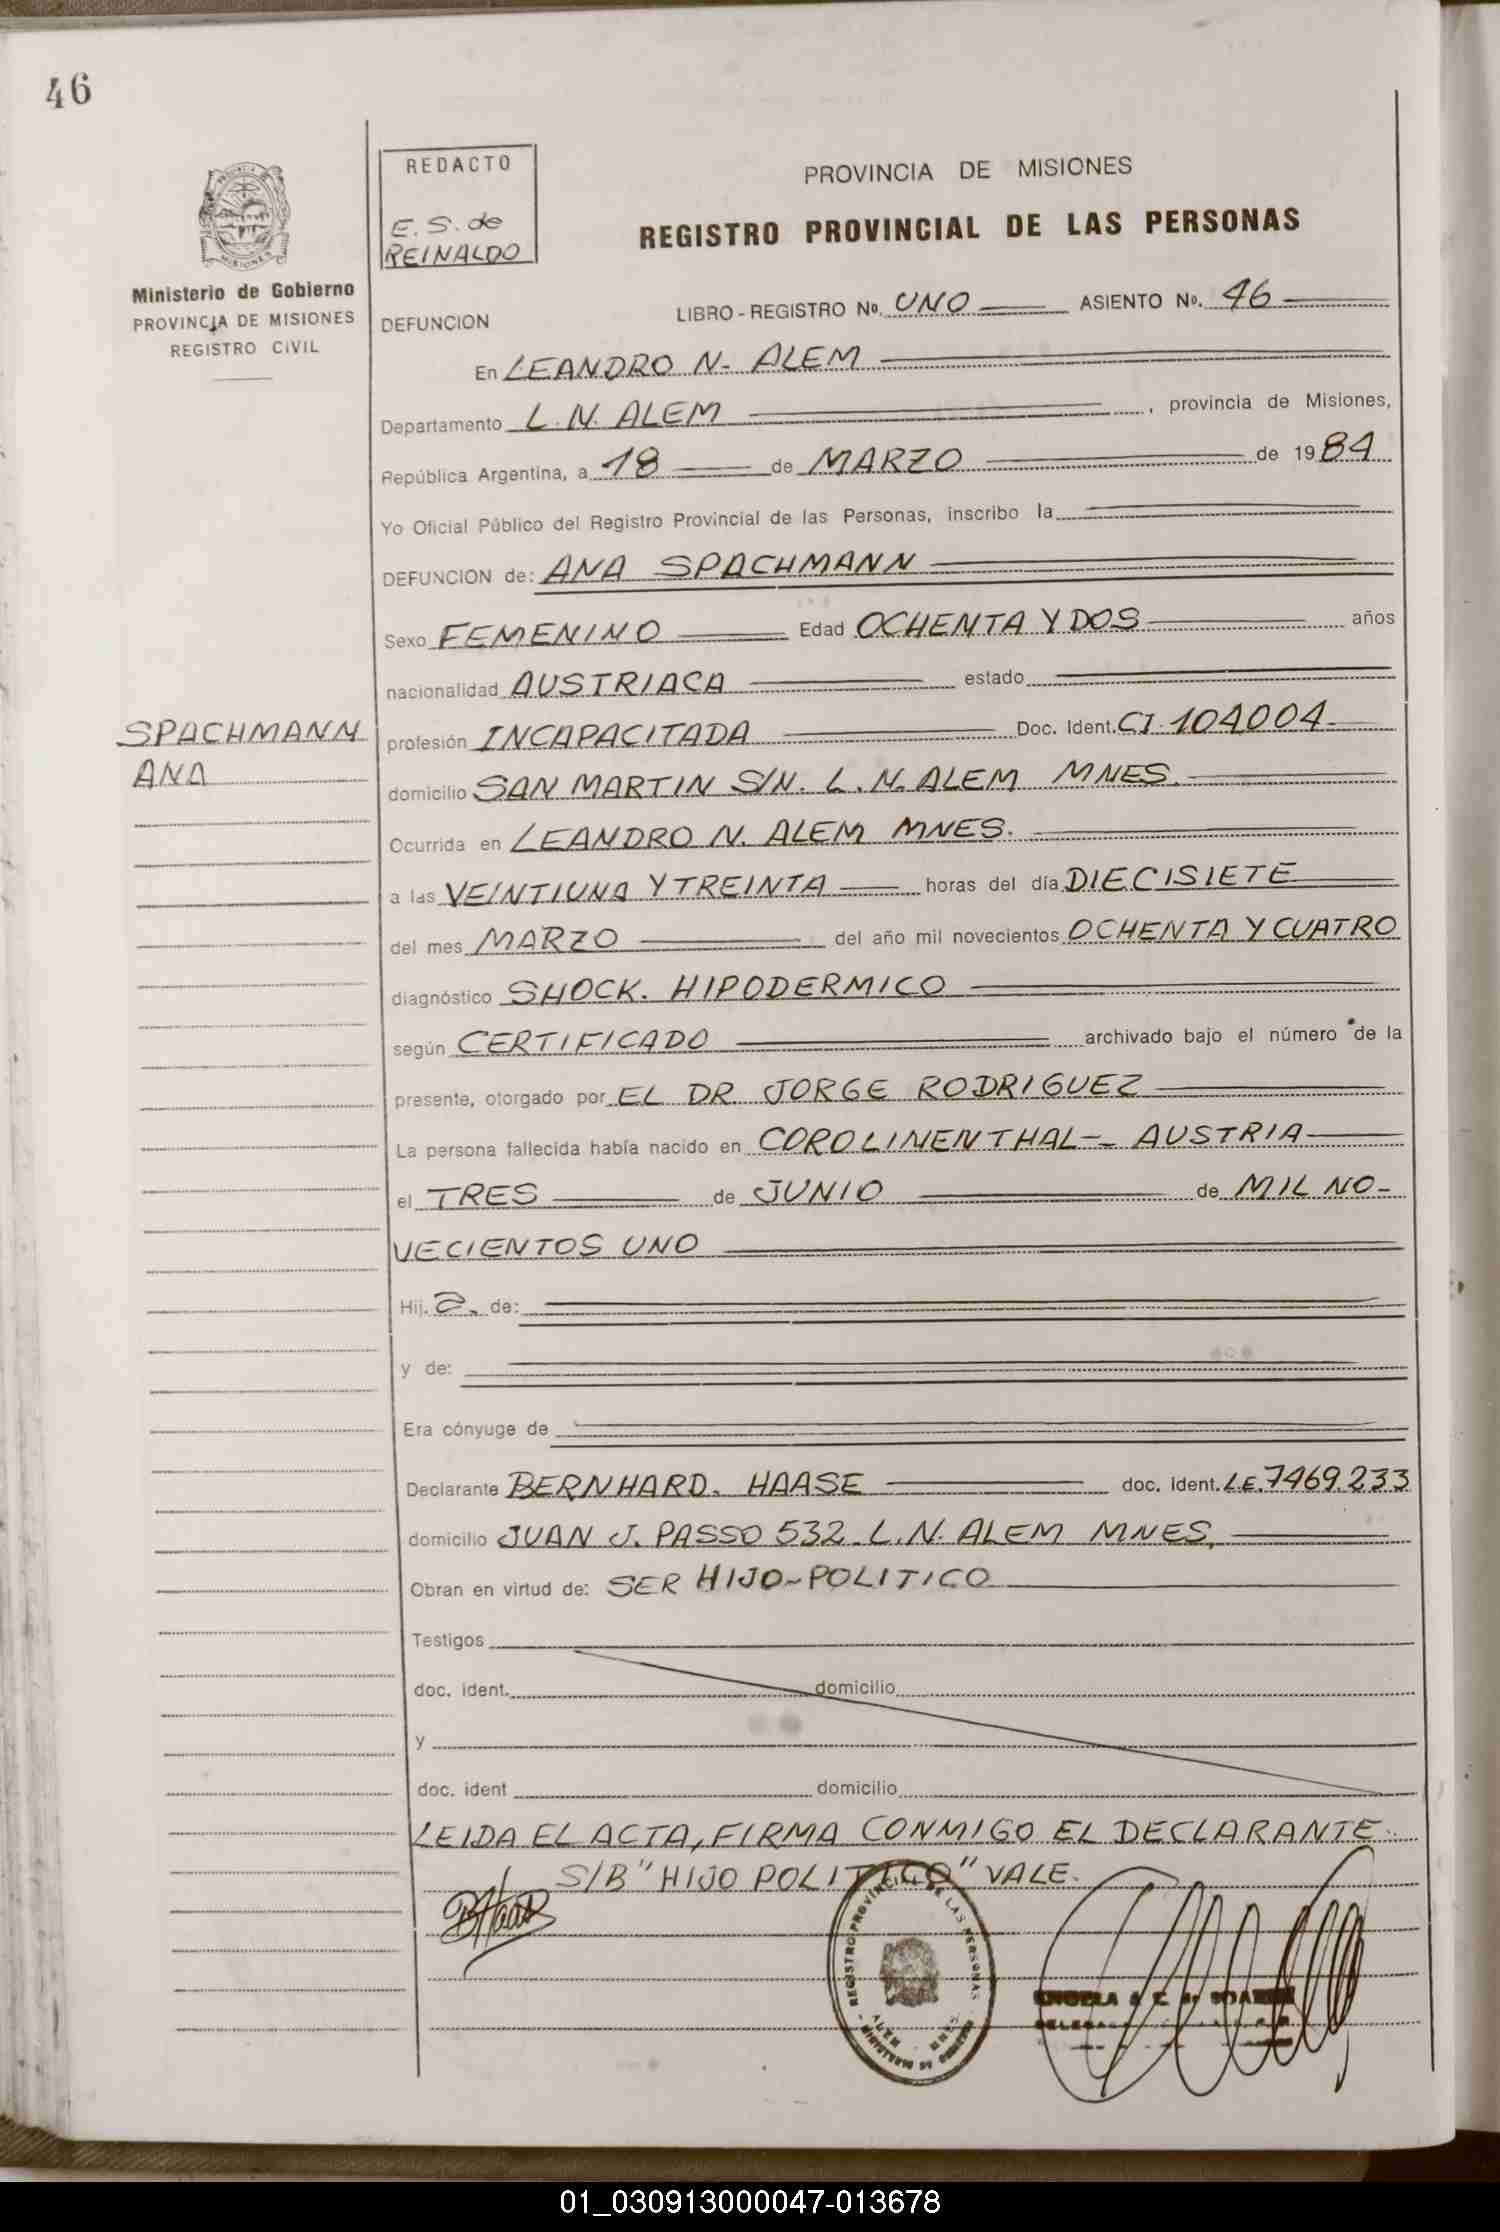 46
REDACTO
E. S. de
REINALDO
PROVINCIA DE MISIONES
REGISTRO PROVINCIAL DE LAS PERSONAS
MISIONES
Ministerio de Gobierno
PROVINCIA DE MISIONES
REGISTRO CIVIL
DEFUNCION
LIBRO - REGISTRO No. UNO ASIENTO No. 46
En LEANDRO N. ALEM
Departamento L. N. ALEM, provincia de Misiones,
República Argentina, a 18 de MARZO de 1984
Yo Oficial Público del Registro Provincial de las Personas, inscribo la
DEFUNCION de: ANA SPACHMANN
Sexo FEMENINO Edad OCHENTA Y DOS años
nacionalidad AUSTRIACA estado
SPACHMANN
ANA
profesión INCAPACITADA Doc. Ident. CI. 104004
domicilio SAN MARTIN S/N. L. N. ALEM MNES.
Ocurrida en LEANDRO N. ALEM MNES.
a las VEINTIUNA Y TREINTA horas del día DIECISIETE
del mes MARZO del año mil novecientos OCHENTA Y CUATRO
diagnóstico SHOCK. HIPODERMICO
según CERTIFICADO archivado bajo el número de la
presente, otorgado por EL DR. JORGE RODRIGUEZ
La persona fallecida había nacido en COROLINENTHAL - AUSTRIA
el TRES de JUNIO de MIL NO-
VECIENTOS UNO
Hij. a. de:
y de:
Era cónyuge de
Declarante BERNHARD. HAASE doc. Ident. L.E. 7469.233
domicilio JUAN J. PASSO 532. L. N. ALEM MNES.
Obran en virtud de: SER HIJO-POLITICO
Testigos
doc. ident. domicilio
y
doc. ident domicilio
LEIDA EL ACTA, FIRMA CONMIGO EL DECLARANTE.
S/B "HIJO POLITICO" VALE.
REGISTRO PROVINCIAL DE LAS PERSONAS
ALEM MNES.
MINISTERIO DE GOBIERNO
01_030913000047-013678